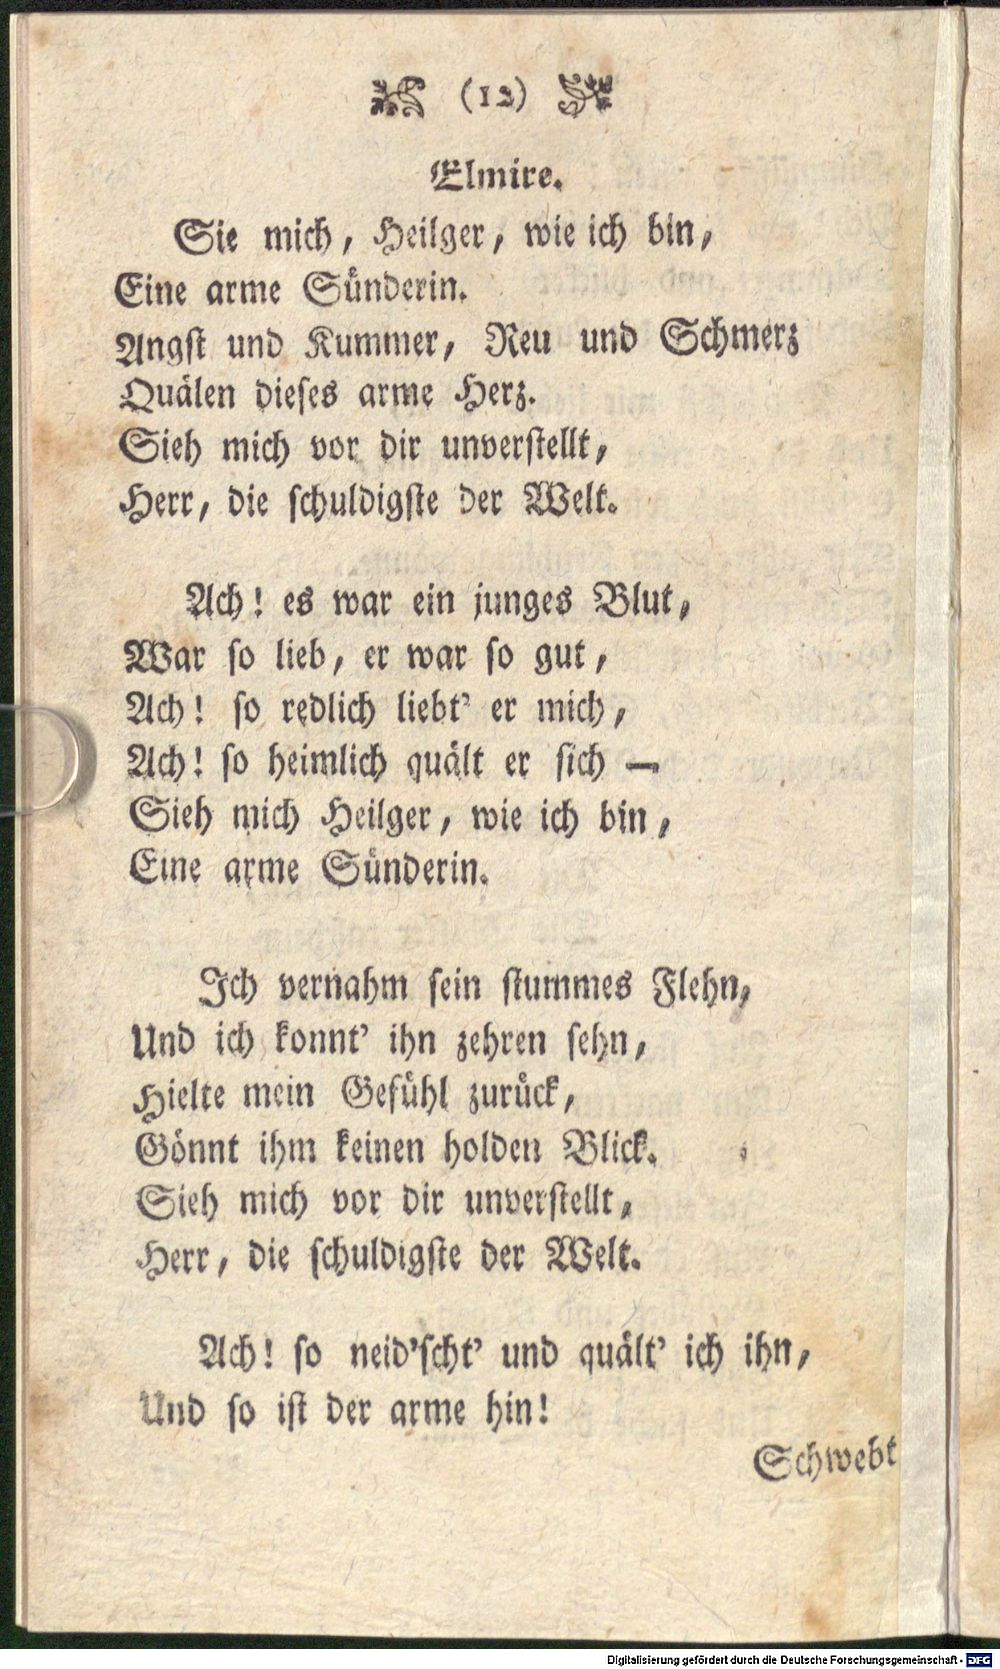 (12)
Elmire.
Sie mich, Heilger, wie ich bin,
Eine arme Sünderin.
Angst und Kummer, Reu und Schmerz
Quälen dieses arme Herz.
Sieh mich vor dir unverstellt,
Herr, die schuldigste der Welt.
Ach! es war ein junges Blut,
War so lieb, er war so gut,
Ach! so redlich liebt' er mich,
Ach! so heimlich quält er sich —
Sieh mich Heilger, wie ich bin,
Eine arme Sünderin.
Ich vernahm sein stummes Flehn,
Und ich konnt' ihn zehren sehn,
Hielte mein Gefühl zurück,
Gönnt ihm keinen holden Blick.
Sieh mich vor dir unverstellt,
Herr, die schuldigste der Welt.
Ach! so neid'scht' und quält' ich ihn,
Und so ist der arme hin!
Schwebt
Digitalisierung gefördert durch die Deutsche Forschungsgemeinschaft - DFG